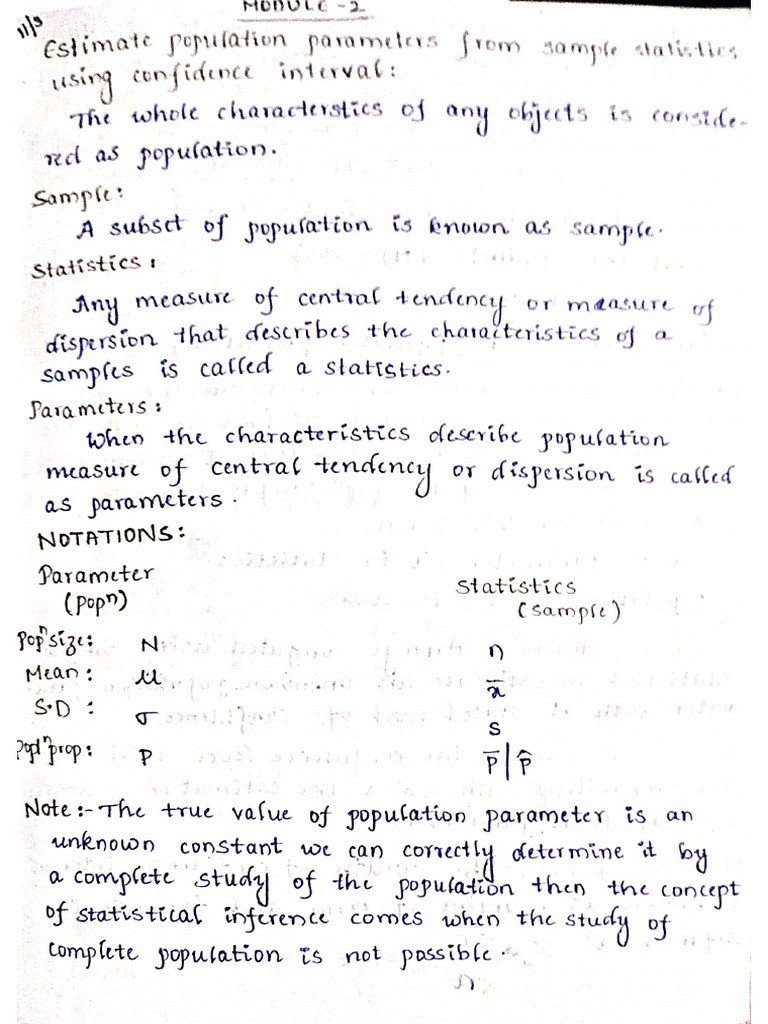 11/3
MODULE-2
Estimate population parameters from sample statistics
using confidence interval:
The whole characterstics of any objects is conside-
red as population.
Sample:
A subset of population is known as sample.
Statistics:
Any measure of central tendency or measure of
dispersion that describes the characteristics of a
samples is called a statistics.
Parameters:
When the characteristics describe population
measure of central tendency or dispersion is called
as parameters.
NOTATIONS:
Parameter Statistics
(popⁿ) (sample)
popⁿ size: N n
Mean: μ x̄
S.D: σ s
popⁿ prop: P p̄ | p̂
Note:- The true value of population parameter is an
unknown constant we can correctly determine it by
a complete study of the population then the concept
of statistical inference comes when the study of
complete population is not possible.